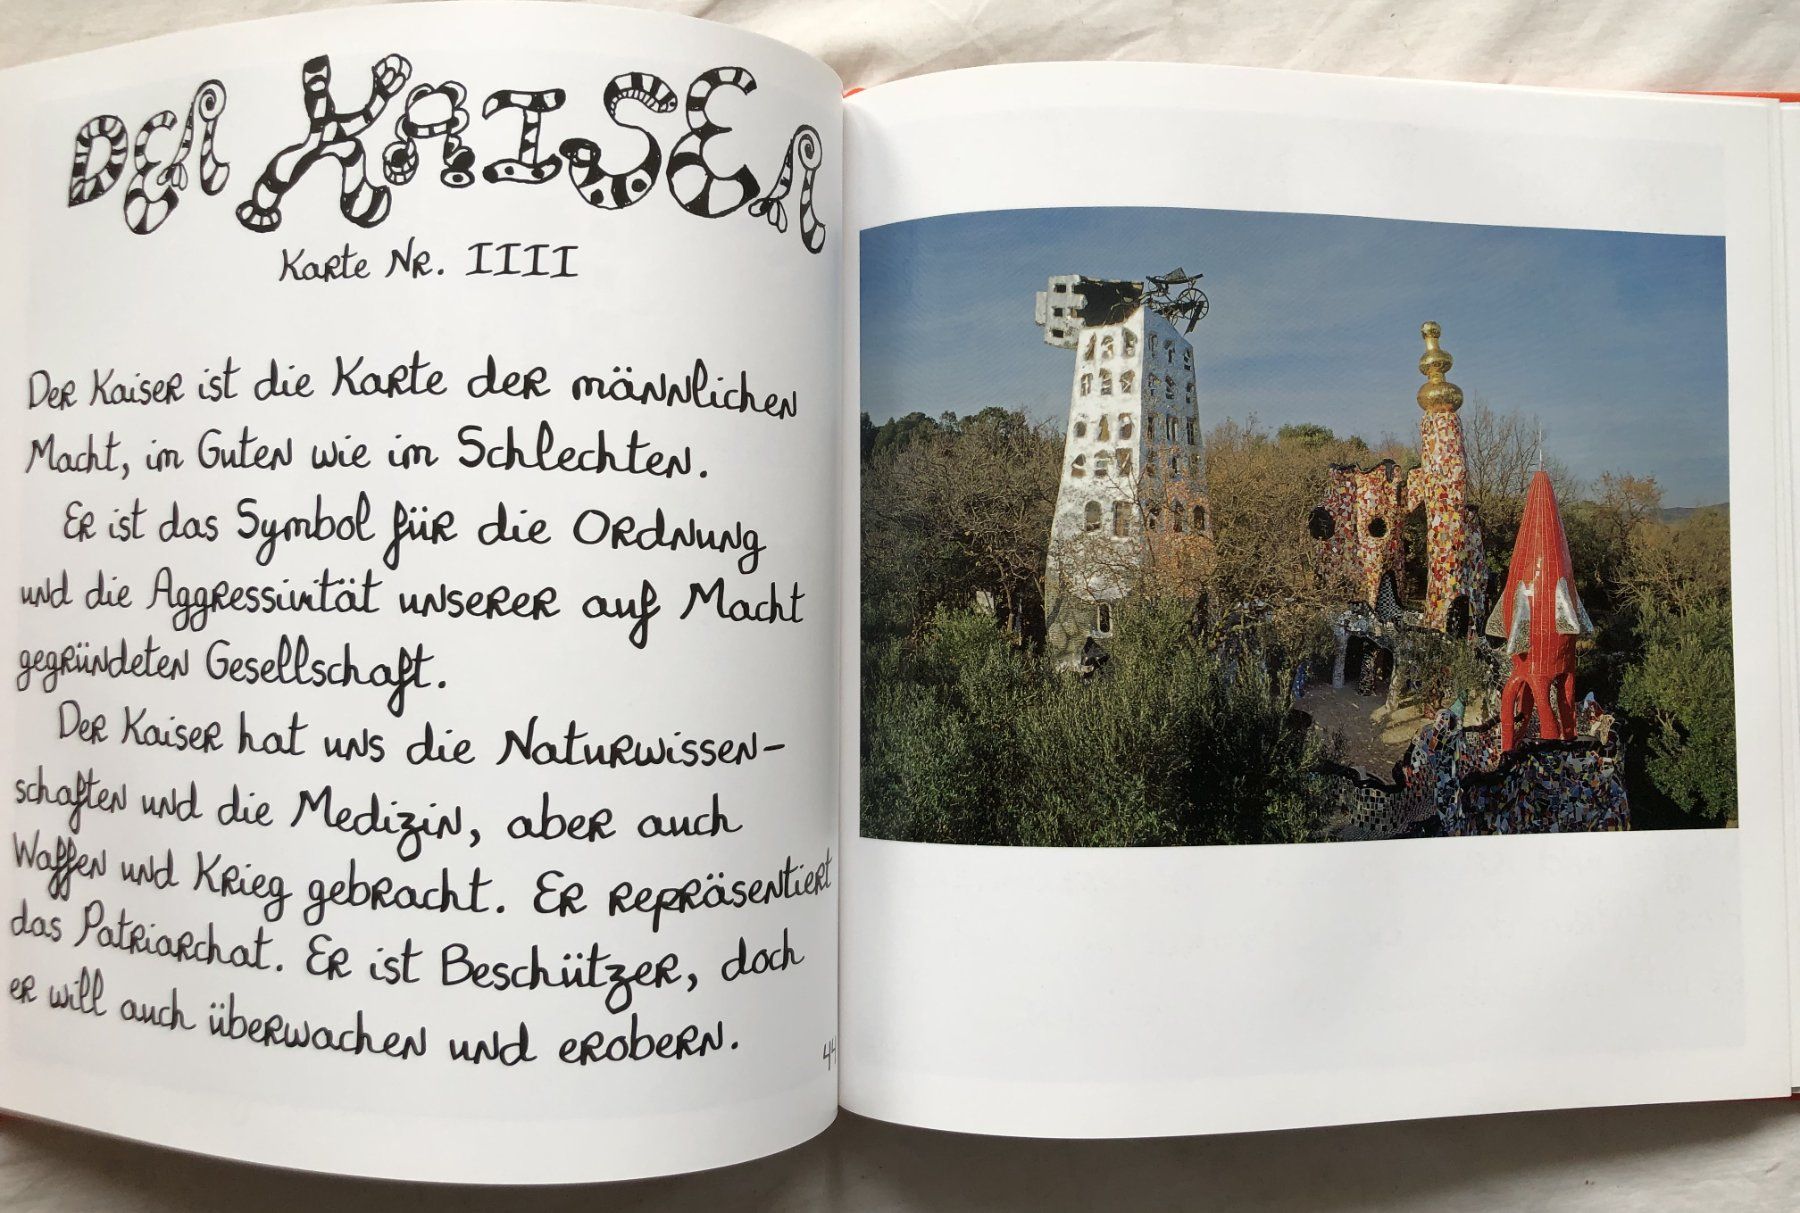 DER KAISER
Karte Nr. IIII
Der Kaiser ist die Karte der männlichen
Macht, im Guten wie im Schlechten.
Er ist das Symbol für die Ordnung
und die Aggressivität unserer auf Macht
gegründeten Gesellschaft.
Der Kaiser hat uns die Naturwissen-
schaften und die Medizin, aber auch
Waffen und Krieg gebracht. Er repräsentiert
das Patriarchat. Er ist Beschützer, doch
er will auch überwachen und erobern.
44